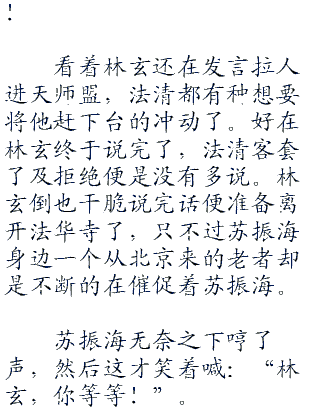 ！
看着林玄还在发言拉人
进天师盟，法清都有种想要
将他赶下台的冲动了。好在
林玄终于说完了，法清客套
了及拒绝便是没有多说。林
玄倒也干脆说完话便准备离
开法华寺了，只不过苏振海
身边一个从北京来的老者却
是不断的在催促着苏振海。
苏振海无奈之下哼了
声，然后这才笑着喊：“林
玄，你等等！”。